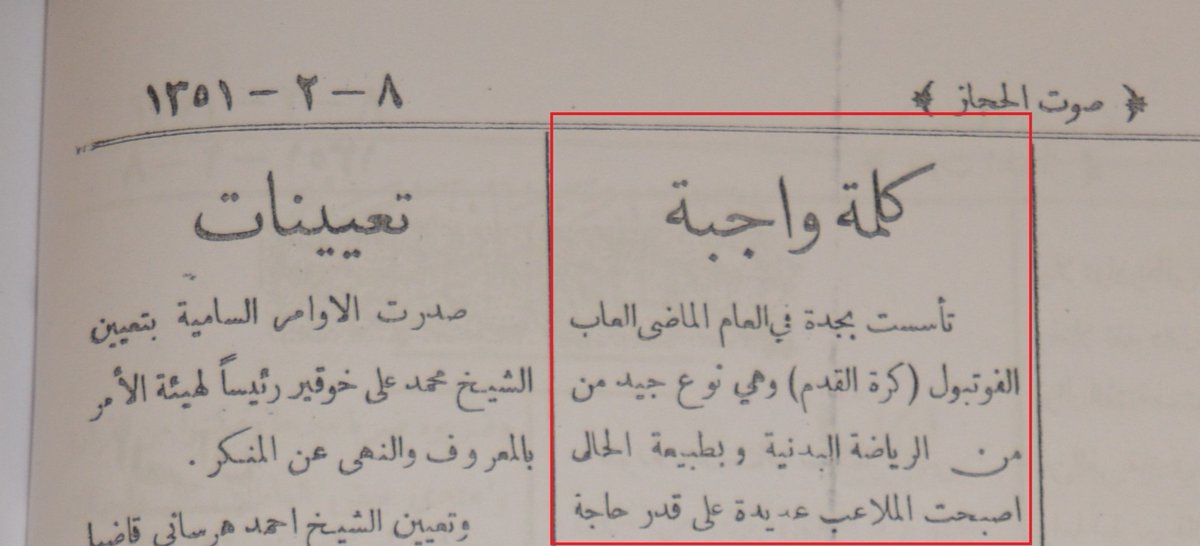 ﴿ صوت الحجاز ﴾
٨ – ٢ – ١٣٥١
كلمة واجبة
تأسست بجدة في العام الماضى العاب
الفوتبول (كرة القدم) وهي نوع جيد من
من الرياضة البدنية وبطبيعة الحالى
اصبحت الملاعب عديدة على قدر حاجة
تعيينات
صدرت الاوامر السامية بتعيين
الشيخ محمد على خوقير رئيساً لهيئة الأمر
بالمعروف والنهى عن المنكر .
وتعيين الشيخ احمد هرسانى قاضيا